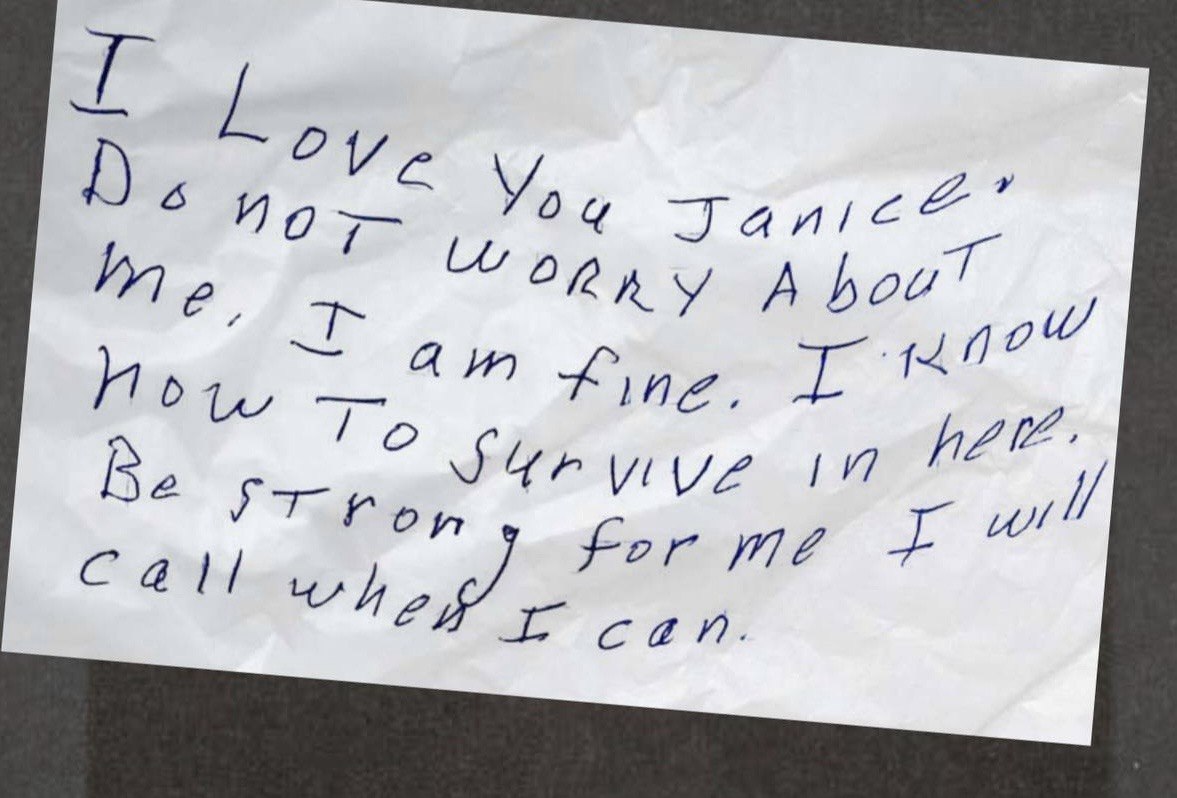 I Love You Janice.
Do noT woRRy AbouT
me. I am fine. I know
how To Survive in here.
Be sTrong for me I will
call when I can.